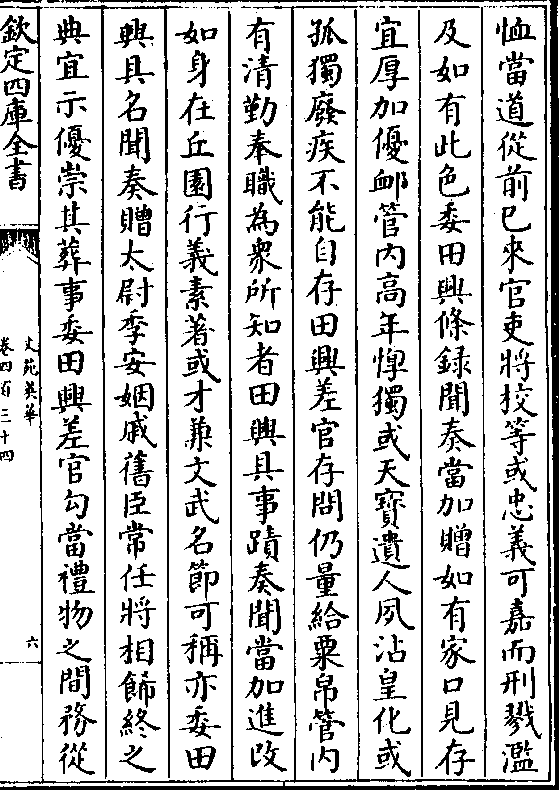 恤當道從前已來官吏將校等或忠義可嘉而刑戮濫
及如有此色委田興條錄聞奏當加贈如有家口見存
宜厚加優䘏管内高年惸獨或天寳遺人夙沾皇化或
孤獨廢疾不能自存田興差官存問仍量給粟帛管内
有清勤奉職為衆所知者田興具事蹟奏聞當加進改
如身在丘園行義素著或才兼文武名節可稱亦委田
興具名聞奏贈太尉季安姻戚舊臣常任將相飾終之
典宜示優崇其葬事委田興差官勾當禮物之間務從
欽定四庫全書
文苑英華
卷四百三十四
六